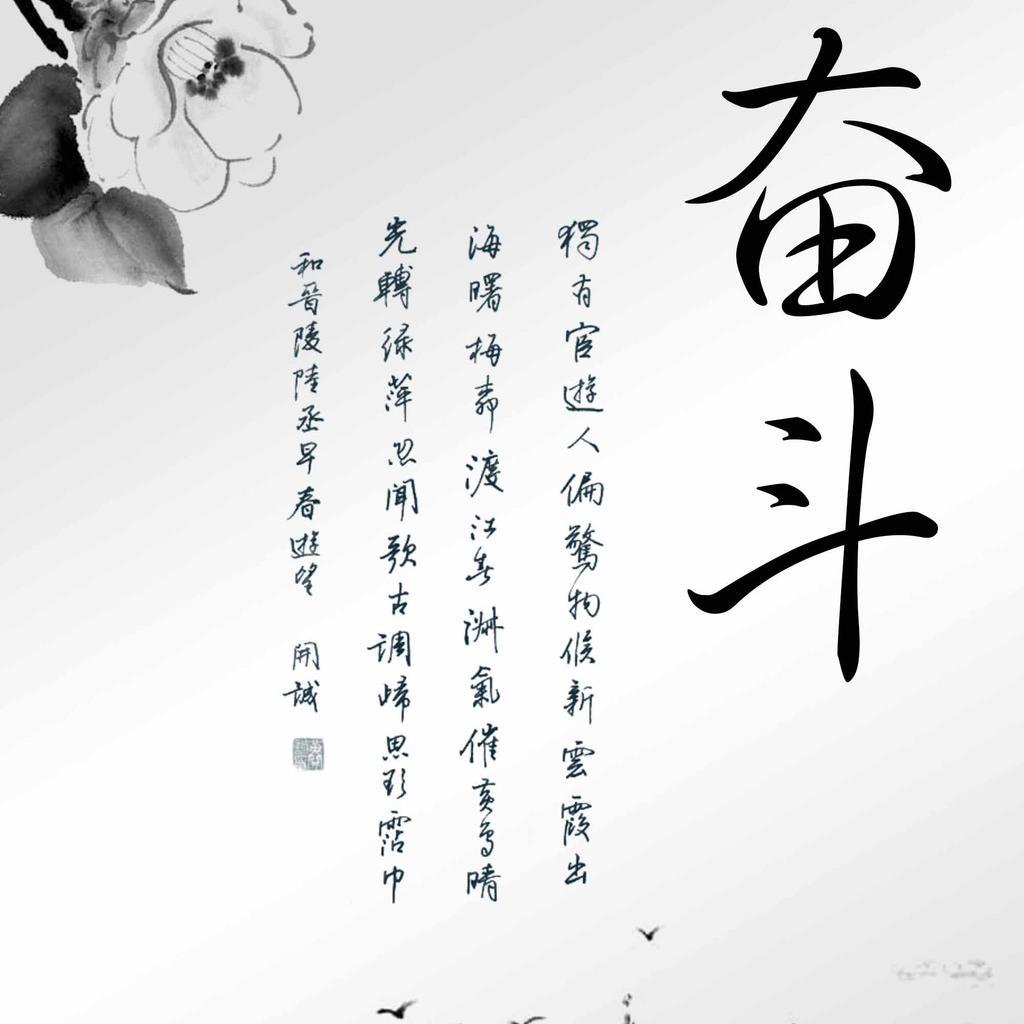 奋斗
獨有宦遊人偏驚物候新雲霞出
海曙梅柳渡江春淑氣催黃鳥晴
光轉緑萍忽聞歌古調歸思欲霑巾
和晉陵陸丞早春遊望 開誠